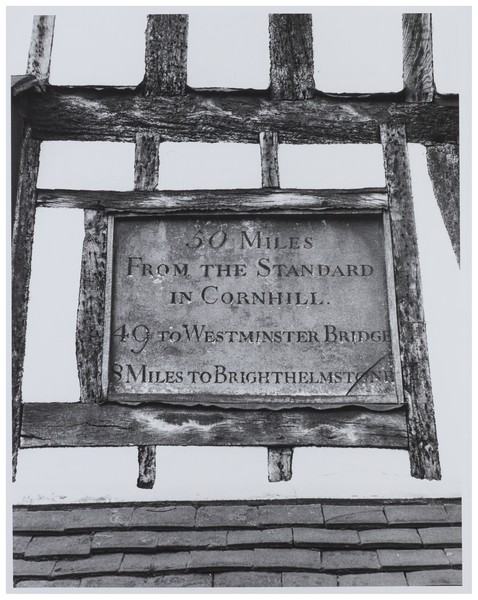 50 MILES
FROM THE STANDARD
IN CORNHILL.
49 TO WESTMINSTER BRIDGE
8 MILES TO BRIGHTHELMSTONE